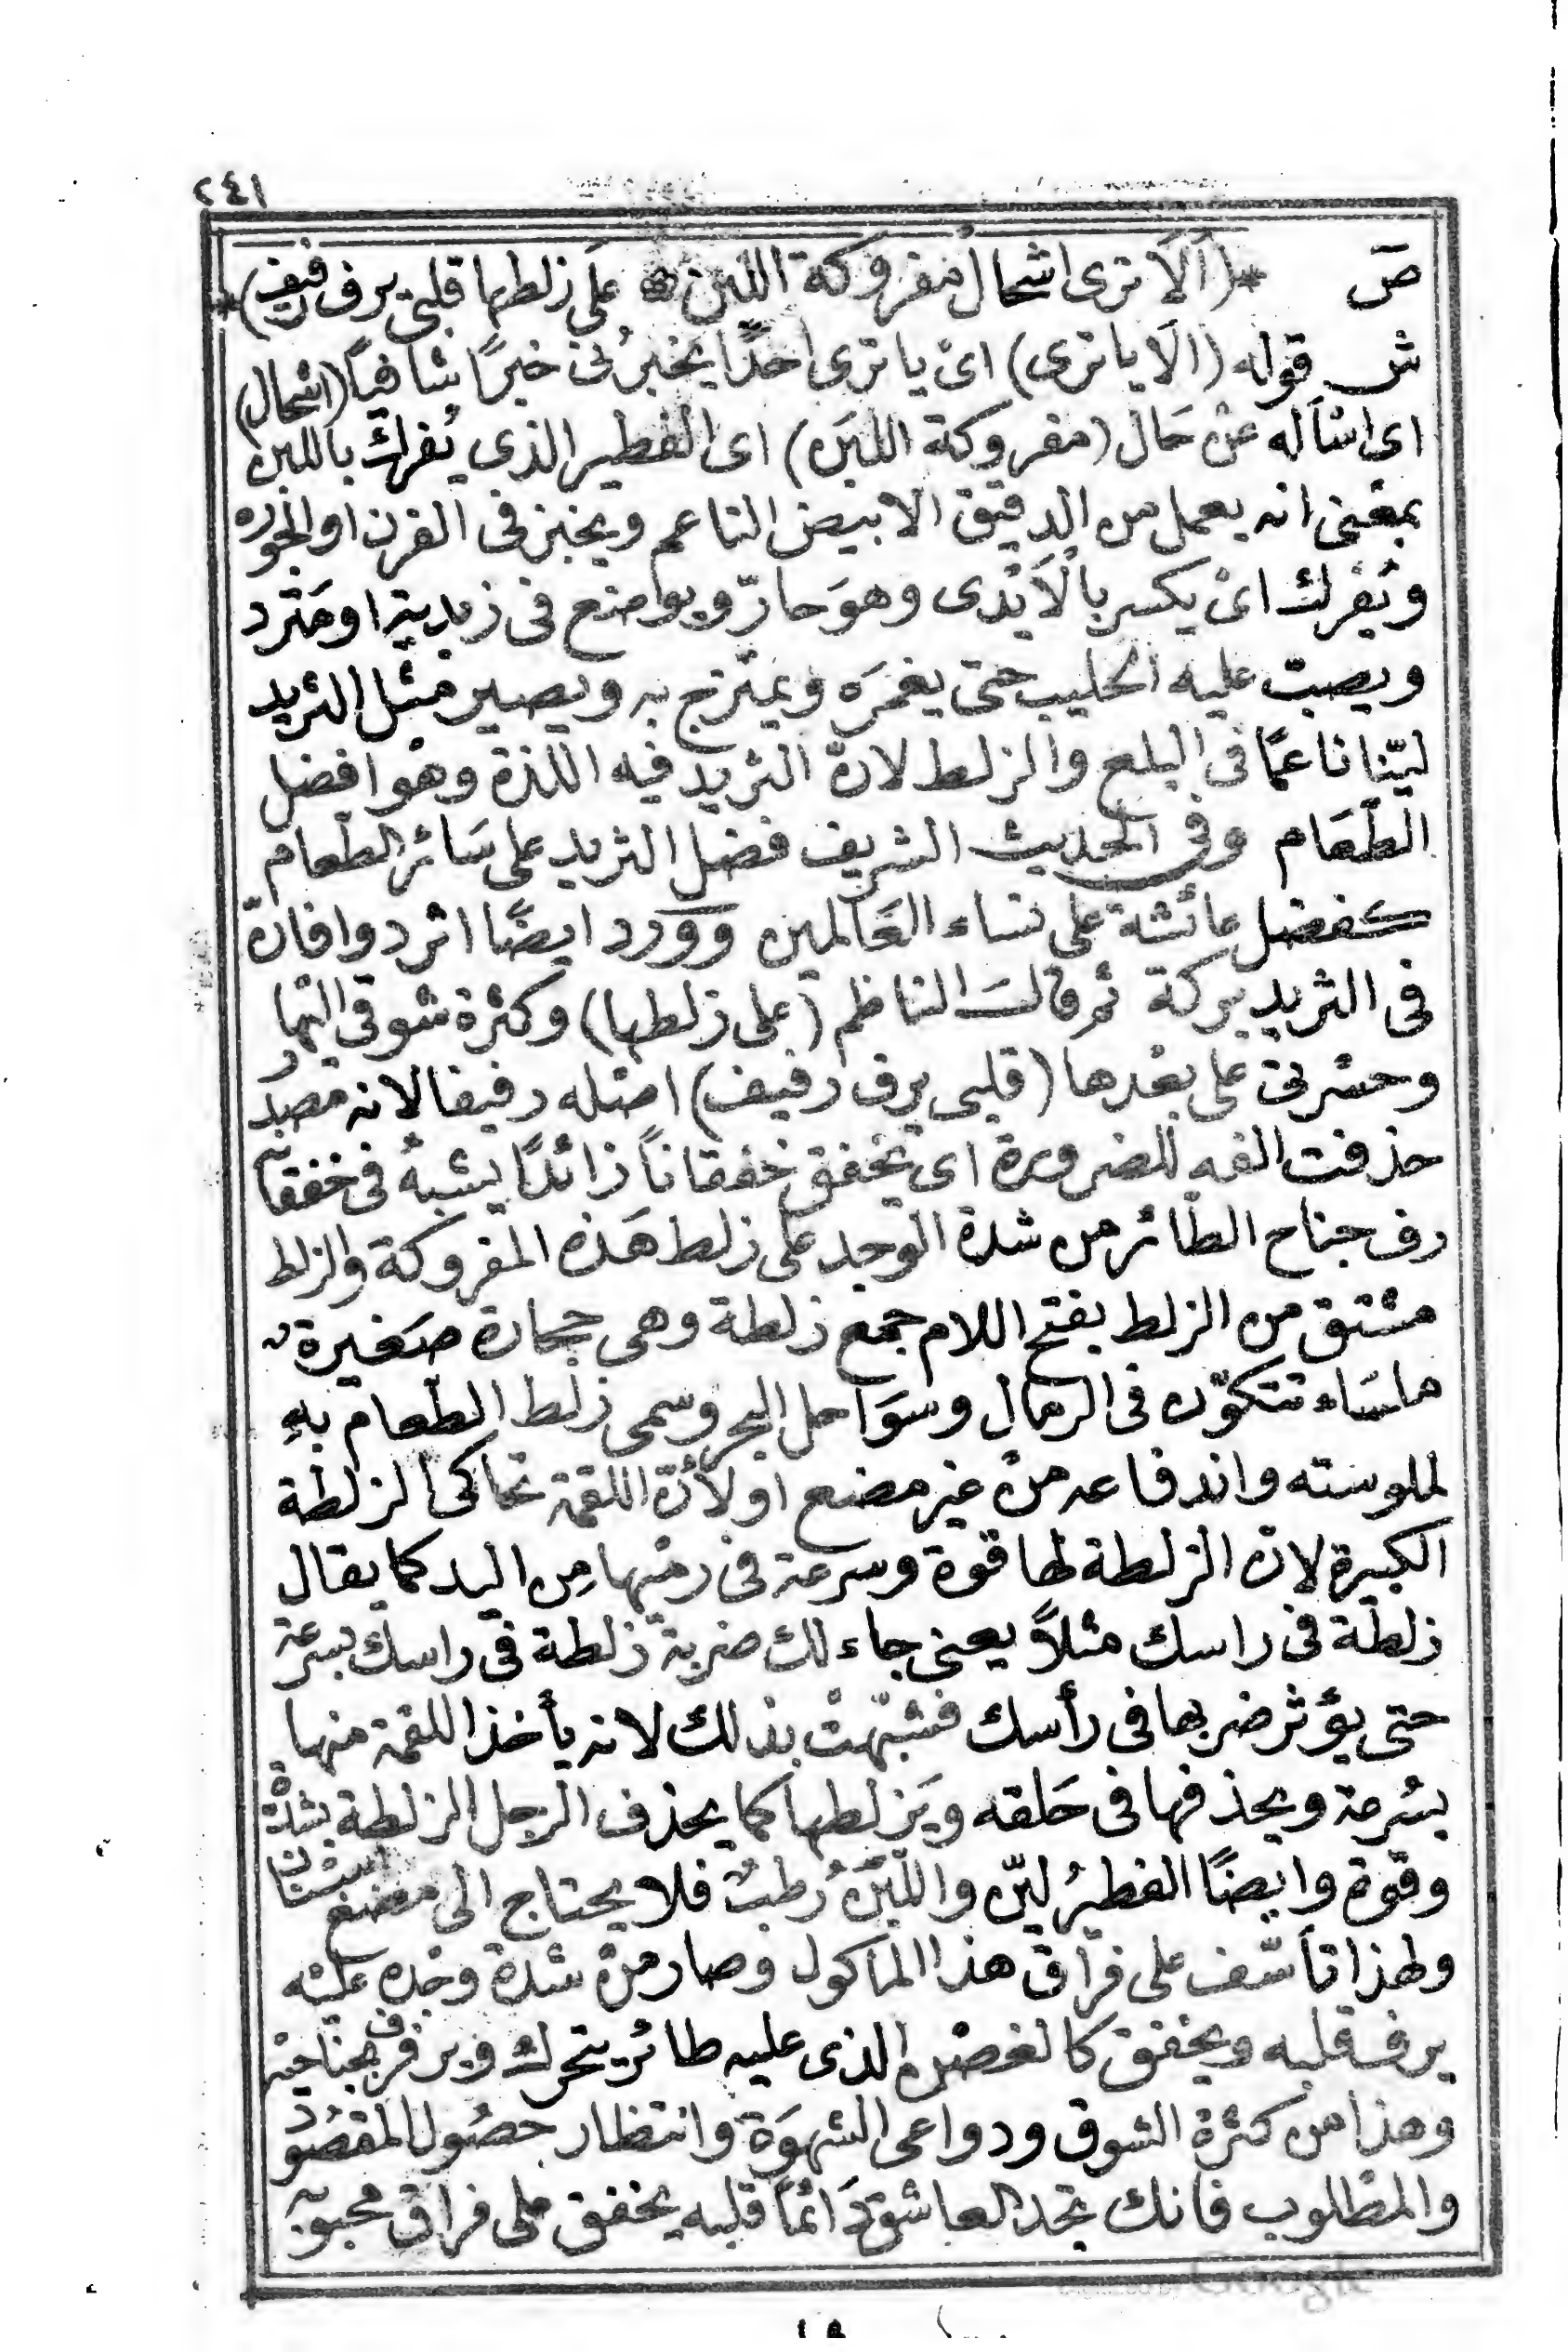 ٢٤١
ص * (اَلَا ترى اشحال مفروكة اللبن * على زلطها قلبى يرف رفيف) *
ش قوله (الَا يا ترى) اىْ يا ترى احدًا يخبرُنى خبرًا شافيًا (اشحال)
اى اسْأله عن حَال (مفروكة اللبَن) اى الفطير الذى يُفرك باللبن
بمعْنى انه يعمل من الدقيق الابيض الناعم ويخبز فى الفرن او الجوره
ويُفرك اىْ يكسر بالْاَيْدى وهوَ حارّ ويواضع فى زبدية او مَترد
ويصبّ عليه الحليب حتى يغمرَه ويمتزج به ويصير مثل الثريد
ليّنا ناعمًا فى البلع والزلط لانّ الثريد فيه اللذة وهو افضل
الطّعَام وفى الحديث الشريف فضل الثريد على سَائر الطّعام
كفضل عائشة على نساء العَالمين ووَرد ايضًا اثردوا فانّ
فى الثريد بركة ثم قالَ الناظم (على زلطها) وكثرة شوقى اليها
وحسْرتى على بعْدها (قلبى يرف رفيف) اصْله رفيفا لانه مصْدر
حذفت الفه للضرورة اى يخفق خفقاناً زائدًا يشبهُ فى خفقانه
رف جناح الطّائر من شدة الوجد على زلط هَذه المفروكة والزلط
مشتق من الزلط بفتح اللام جمع زلطة وهى حجارة صَغيرة
ملسَاء تتكوّن فى الرمال وسوَاحل البحر وسمى زلط الطّعام بهِ
لملوسته واندفاعه منْ غير مضغ او لأنّ اللقمة تحاكى الزلطة
الكبيرة لان الزلطة لها قوة وسرعة فى رمْيها مِن اليد كما يقال
زلطة فى راسك مثلاً يعنى جاء لك ضربة زلطة فى راسك بسرعة
حتى يؤثر ضربها فى رأسك فشبّهتْ بذلك لانه يأخذ اللقمة منها
بسُرعة ويحذفها فى حَلقه ويَزلطها كما يحذف الرجل الزلطة بشدّة
وقوة وايضًا الفطيرُ ليّن واللّبَنُ رُطبٌ فلا يحتاج الى مضغ
ولهذا تأسّف على فراق هذا المأكول وصار منْ شدة وجْده عليْه
يرف قلبه ويخفق كالغصْن الذى عليه طائر يتحرك ويرفرف بجناحيْه
وهذا من كثرة الشوق ودواعى الشهوَة وانتظار حصُول المقصُود
والمطْلوب فانك تجد العاشق دَائمًا قلبه يخفق على فراق محبوبه
Google